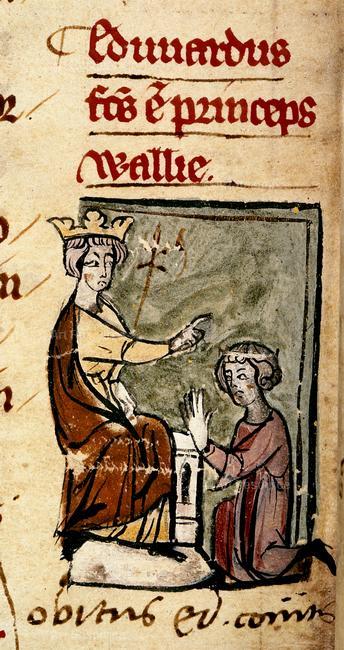 Edwardus
fcs ē princeps
Wallie.
obitus ed. comit